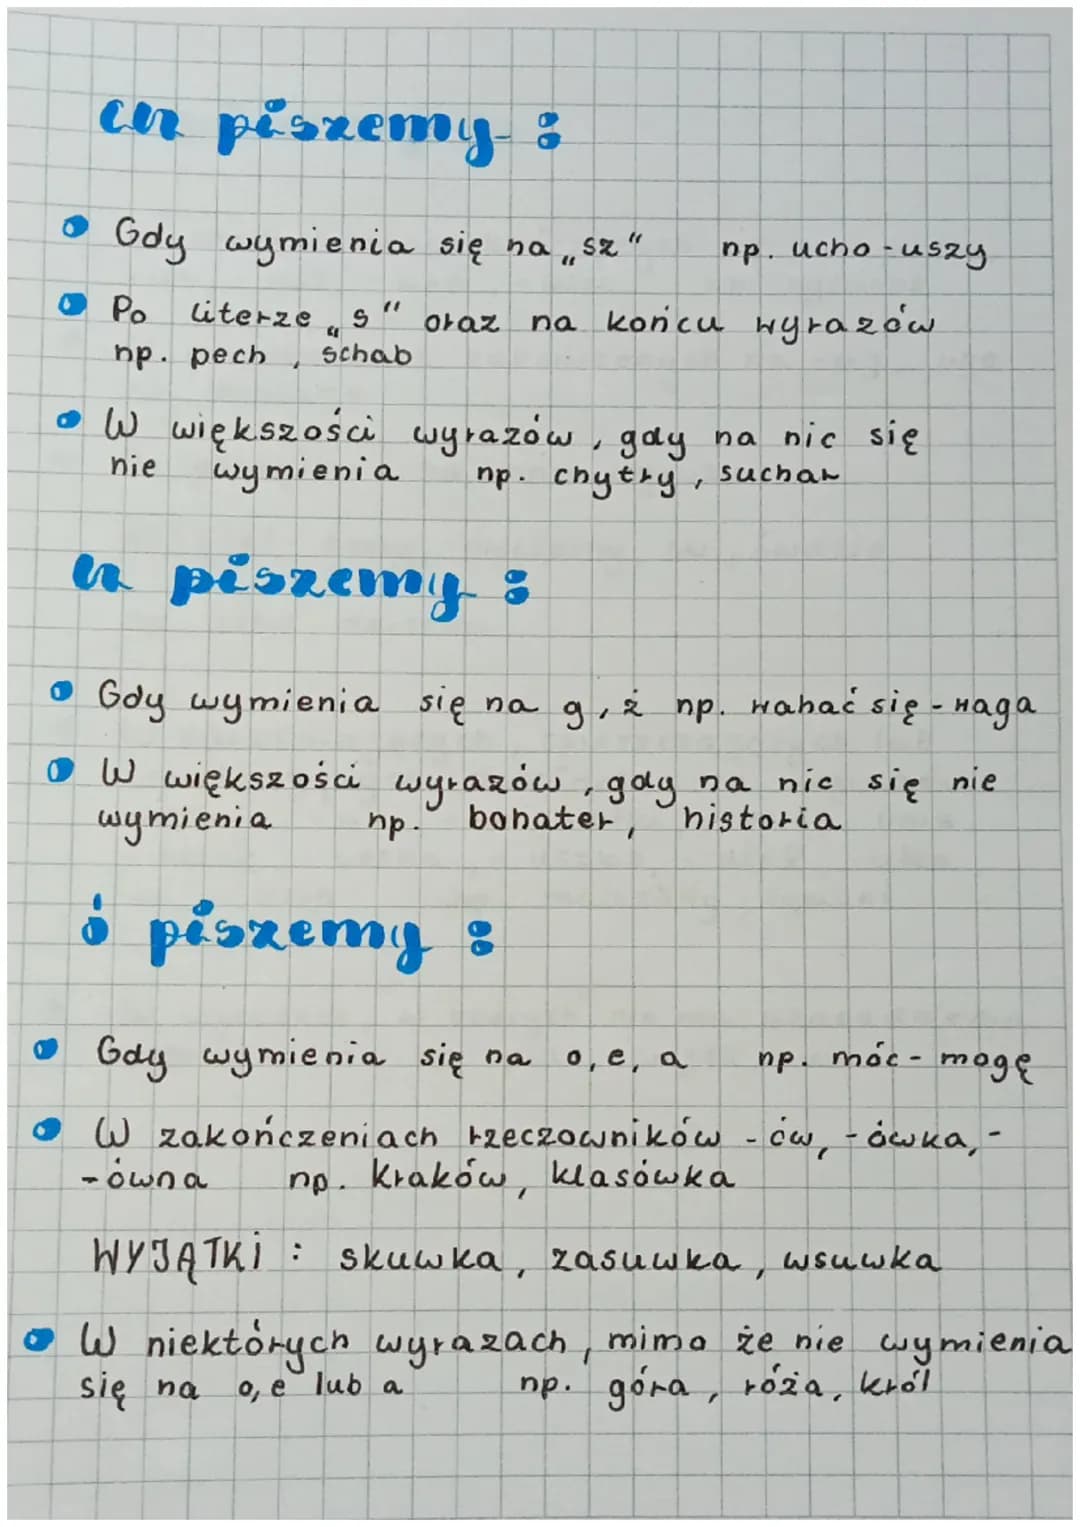 ch piszemy :
• Gdy wymienia się na „sz" np. ucho - uszy
• Po literze „s" oraz na końcu wyrazów
np. pech, schab
• W większości wyrazów, gdy na nic się
nie wymienia np. chytry, suchar
h piszemy :
• Gdy wymienia się na g, ż np. wahać się - waga
• W większości wyrazów, gdy na nic się nie
wymienia np. bohater, historia
ó piszemy :
• Gdy wymienia się na o, e, a np. móc - mogę
• W zakończeniach rzeczowników - ów, - ówka, -
- ówna np. Kraków, klasówka
WYJĄTKI : skuwka, zasuwka, wsuwka
• W niektórych wyrazach, mimo że nie wymienia
się na o, e lub a np. góra, róża, król